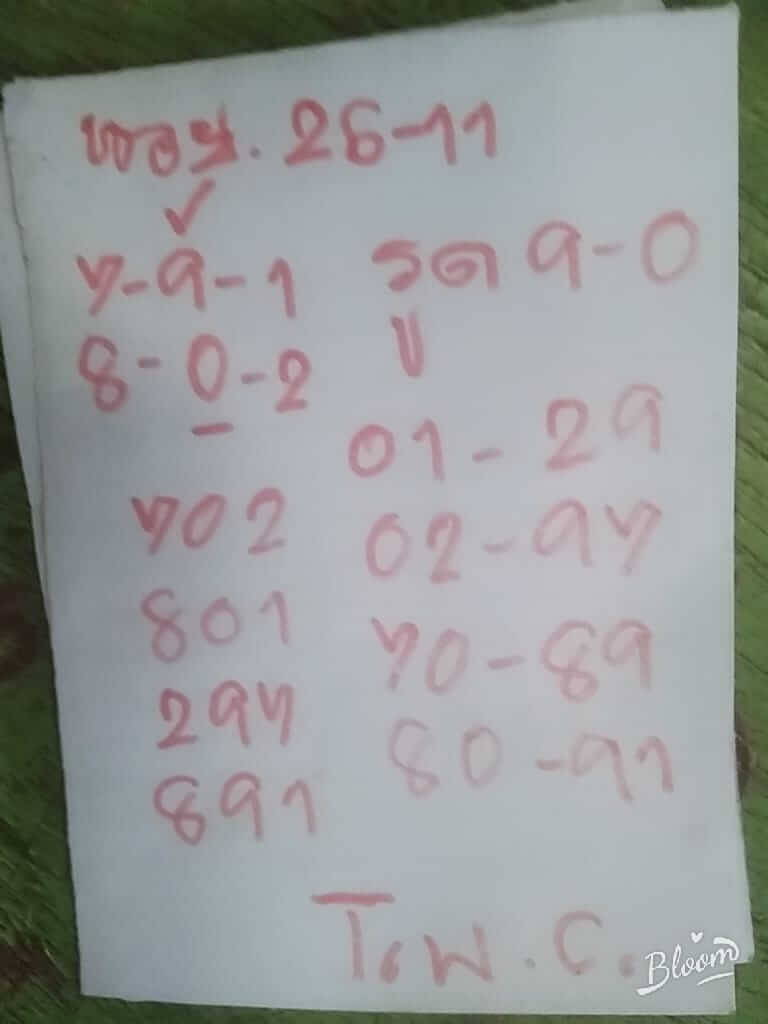 ฮอย. 26-11
✓
7-9-1
8-0-2
702
801
297
891
รูด 9-0
01-29
02-97
70-89
80-91
Bloom